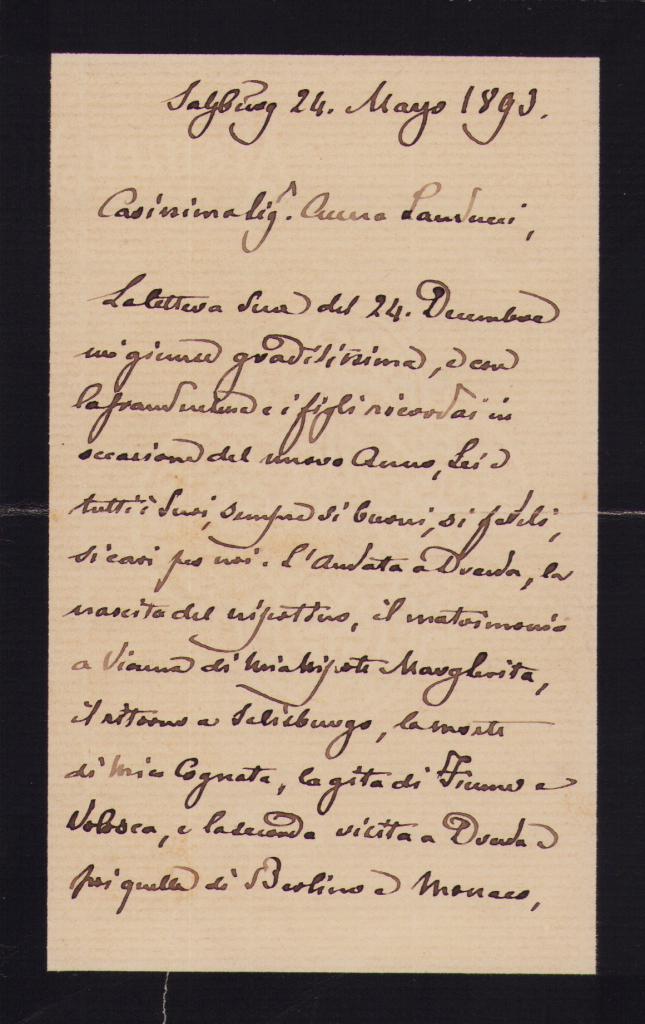 Salzburg 24. Mayo 1893.
Carissima Sigᵃ. Anna Landucci,
La lettera Sua del 24. Decembre
mi giunse graditissima, e con
la granduchessa e i figli ricordai in
occasione del nuovo Anno, Lei e
tutti i Suoi, sempre si buoni, si fedeli,
si cari per noi. L'andata a Dresda, la
nascita del nipottino, il matrimonio
a Vienna di mia Nipote Margherita,
il ritorno a Salisburgo, la morte
di mia Cognata, la gita di Fiume e
Volosca, e la seconda visita a Dresda e
poi quella di Berlino e Monaco,